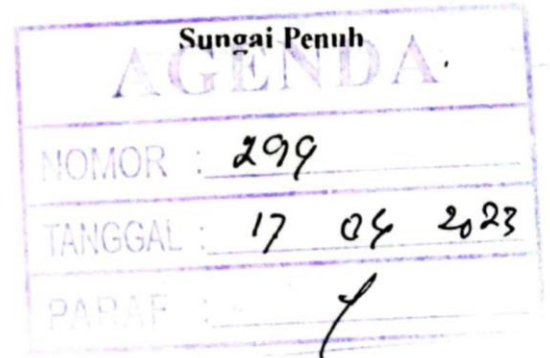 Sungai Penuh
AGENDA
NOMOR : 299
TANGGAL : 17 04 2023
PARAF :